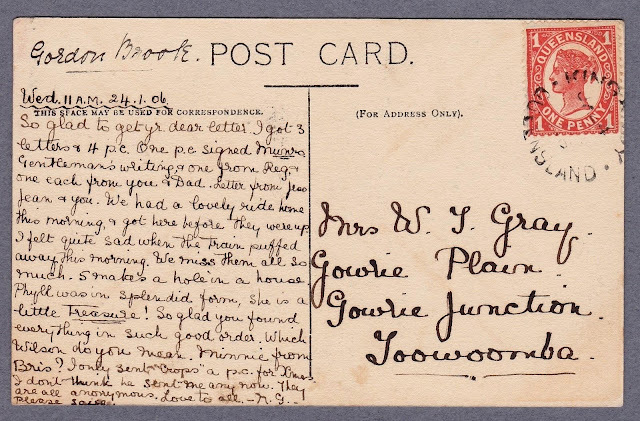 Gordon Brook.
POST CARD.
Wed. 11 A.M. 24.1.06
THIS SPACE MAY BE USED FOR CORRESPONDENCE.
(FOR ADDRESS ONLY).
So glad to get yr. dear letter. I got 3
letters & 4 p.c. One p.c signed
Gentleman's writing, & one from Reg, &
one each from you & Dad. Letter from Jess
Jean & you. We had a lovely ride home
this morning, & got here before they were up
I felt quite sad when the train puffed
away this morning. We miss them all so
much. 5 makes a hole in a house
Phyll was in splendid form, she is a
little Treasure! So glad you found
everything in such good order. Which
Wilson do you mean. Minnie from
Bris? I only sent "Crops" a p.c. for Xmas
I don't think he sent me any now. They
are all anonymous. Love to all. - N.G. -
Please
Mrs W. T. Gray.
Gowrie Plain.
Gowrie Junction.
Toowoomba.
QUEENSLAND
1 1
1 ONE PENNY 1
NSLAND